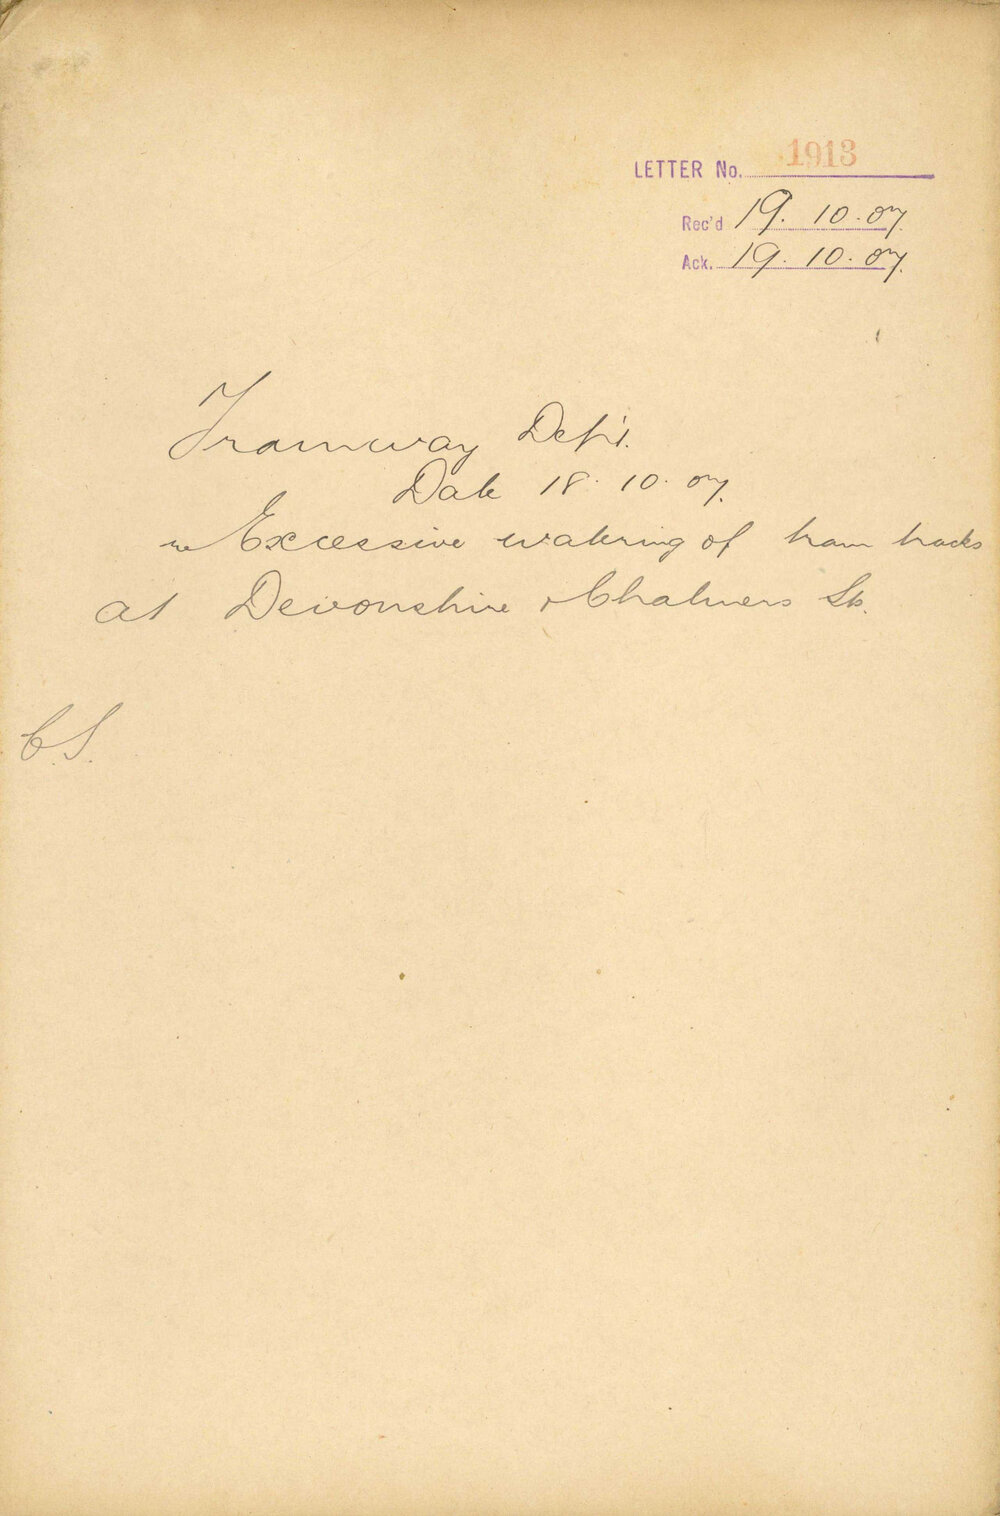 LETTER No. 1913
Rec'd 19. 10. 07.
Ack. 19. 10. 07.
Tramway Dep't.
Date 18. 10. 07.
re Excessive watering of tram tracks
at Devonshire & Chalmers Sts.
C.S.